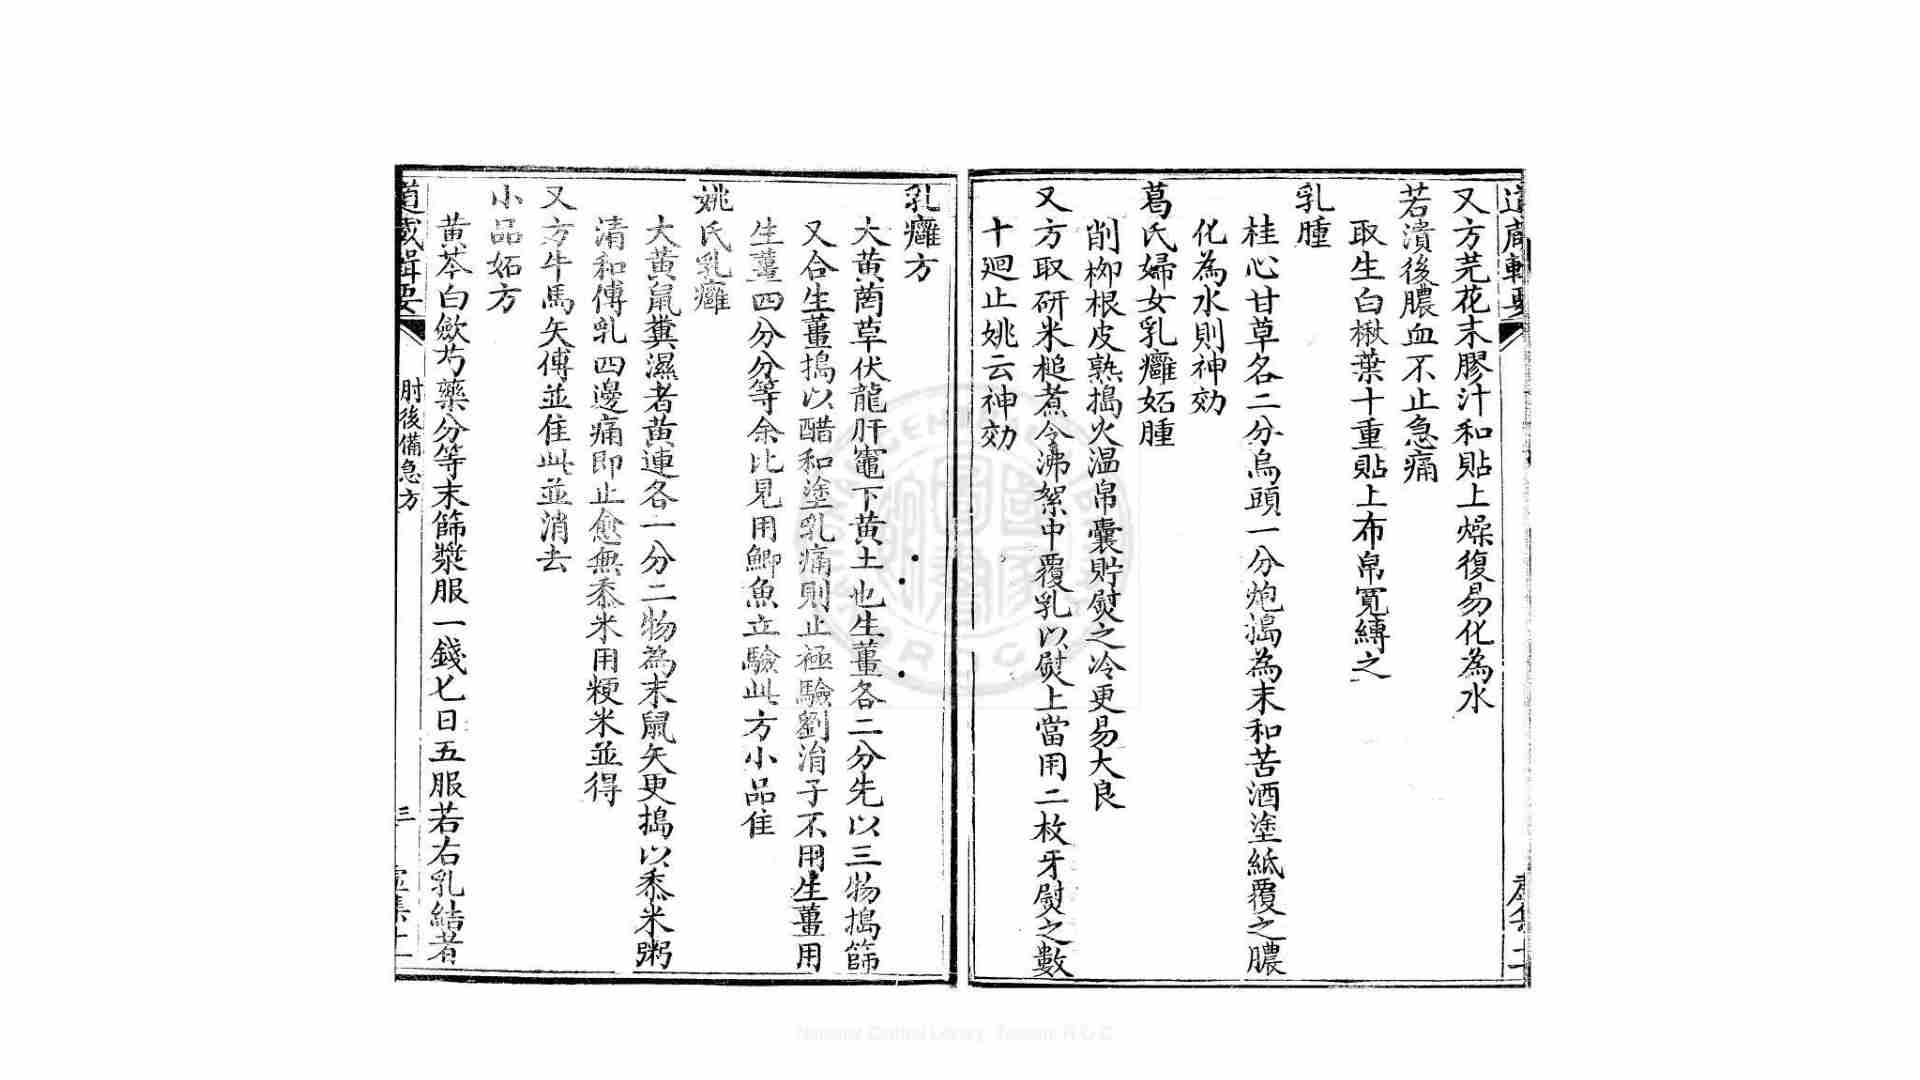 又方芫花末膠汁和貼上燥復易化為水
若潰後膿血不止急痛
取生白楸葉十重貼上布帛寬縛之
乳腫
桂心甘草各二分烏頭一分炮搗為末和苦酒塗紙覆之膿
化為水則神効
葛氏婦女乳癰妬腫
削栁根皮熟搗火温帛囊貯熨之冷更易大良
又方取研米槌煮令沸絮中覆乳以熨上當用二枚牙熨之數
十廻止姚云神効
乳癰方
大黄䓻草伏龍肝竈下黄土也生薑各二分先以三物搗篩
又合生薑搗以醋和塗乳痛則止極驗劉涓子不用生薑用
生薑四分分等余比見用鯽魚立驗此方小品佳
姚氏乳癰
大黄鼠糞濕者黄連各一分二物為末鼠矢更搗以黍米粥
清和傅乳四邊痛即止愈無黍米用粳米並得
又方牛馬矢傅並佳此並消去
小品妬方
黄芩白斂芍藥分等末篩漿服一錢匕日五服若右乳結者
道藏輯要
肘後備急方
三